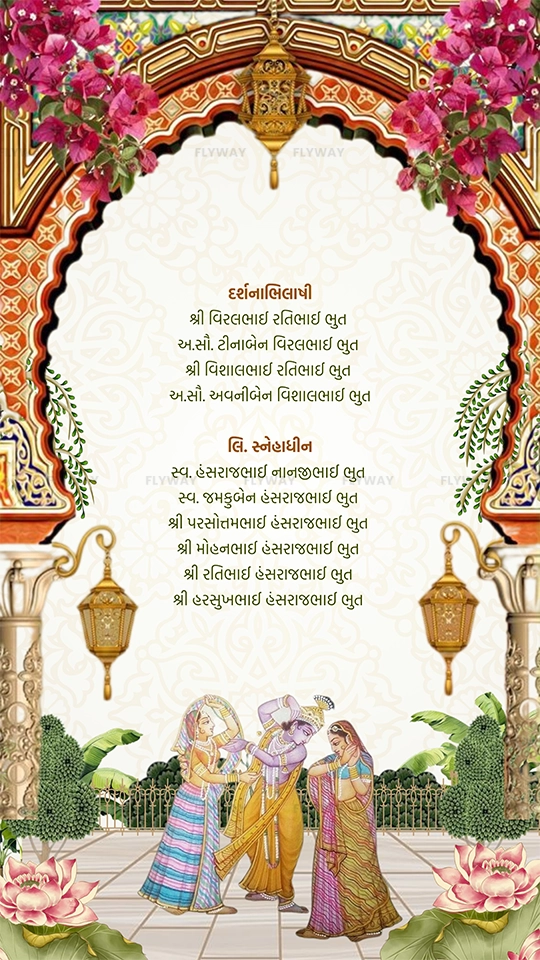 FLYWAY FLYWAY
દર્શનાભિલાષી
શ્રી વિરલભાઈ રતિભાઈ ભુત
અ.સૌ. ટીનાબેન વિરલભાઈ ભુત
શ્રી વિશાલભાઈ રતિભાઈ ભુત
અ.સૌ. અવનીબેન વિશાલભાઈ ભુત
લિ. સ્નેહાધીન
સ્વ. હંસરાજભાઈ નાનજીભાઈ ભુત
FLYWAY FLYWAY FLYWAY FLYWAY
સ્વ. જમકુબેન હંસરાજભાઈ ભુત
શ્રી પરસોત્તમભાઈ હંસરાજભાઈ ભુત
શ્રી મોહનભાઈ હંસરાજભાઈ ભુત
શ્રી રતિભાઈ હંસરાજભાઈ ભુત
શ્રી હરસુખભાઈ હંસરાજભાઈ ભુત
FLYWAY FLYWAY